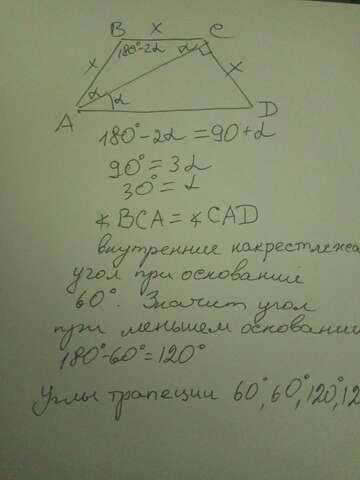 B x C
x 180°-2α α x
α α
A D
180°-2α = 90+α
90° = 3α
30° = α
∢ BCA = ∢ CAD
внутренние накрестлежа
угол при оснований
60°. Значит угол
при меньшем основании
180°-60°=120°
Углы трапеции 60°, 60°, 120°, 12